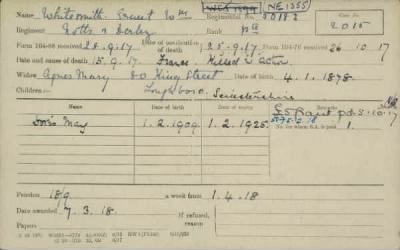 Name Whitesmith. Ernest Wm Regimental No. NE 1355
Regiment Notts & Derby Rank Pte 2015
Form 104-88 received 28.9.17 Date of notification of death 25.9.17 Form 104-76 received 26 10 17
Date and cause of death 15.9.17. France Killed in Action
Widow Agnes Mary 80 King Street Date of birth 4.1.1878.
Children: Loughboro. Leicestershire
Date of birth Date of expiry Remarks
Doris May 1.2.1909. 1.2.1925. £5 Grant pd 5.10.17
No. for whom S.A. is paid 1.
Pension 18/9 a week from 1.4.18
Date awarded 7.3.18. If refused, reason
Papers